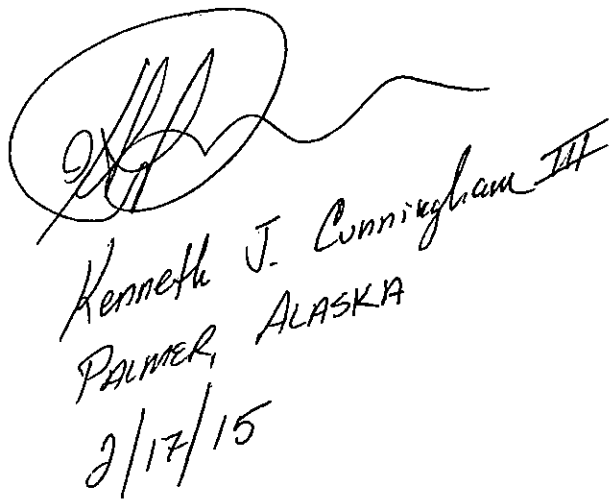 Kenneth J. Cunningham III
PALMER, ALASKA
2/17/15